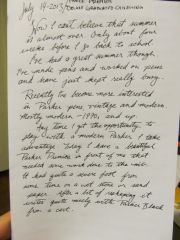 July 19-2013
Wow I can't believe that summer
is almost over. Only about four
weeks before I go back to school.
I've had a great summer though
I've made pens and worked on pens
and have just kept really busy.
Recently I've become more interested
in Parker pens vintage and modern
Mostly modern -1970s and up.
Any time I get the opportunity to
play with a modern Parker, I take
advantage. Today I have a beautiful
Parker Premier in front of me that
needed some work done to the nib.
It had quite a severe foot from
some time on a wet stone or sand
paper. After a lot of reshaping it
writes quite nicely with Parker Black
from a cart.